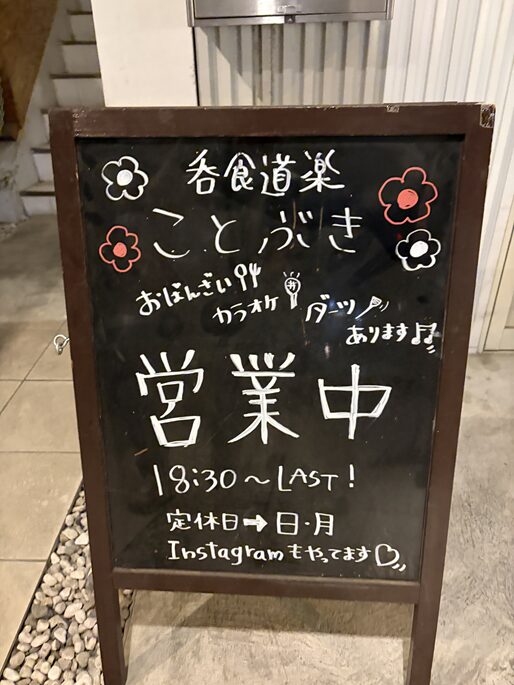 呑食道楽
ことぶき
おばんざい
カラオケ
ダーツ
あります♬
営業中
18:30～LAST!
定休日➡日・月
Instagramもやってます♡